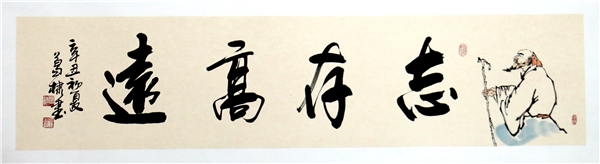 志存高遠
辛丑初夏
葛樹畫